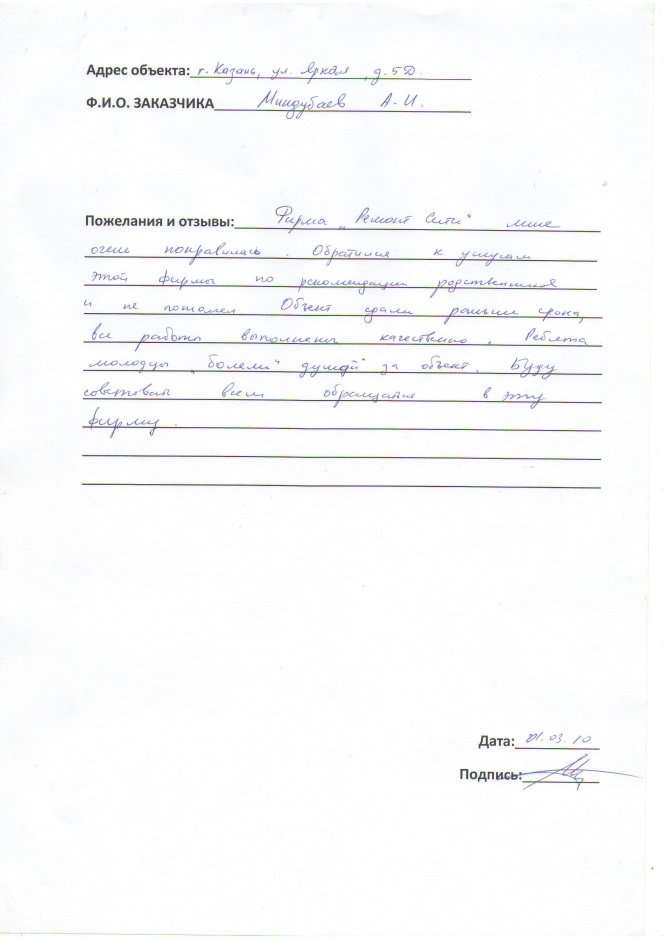 Адрес объекта: г. Казань, ул. Яркая, д. 5Д.
Ф.И.О. ЗАКАЗЧИКА Миндубаев А.И.
Пожелания и отзывы: Фирма „Ремонт Сити" мне
очень понравилась. Обратился к услугам
этой фирмы по рекомендации родственников
и не пожалел Объект сдали раньше срока,
все работы выполнены качественно. Ребята
молодцы „болели" душой" за объект. Буду
советовать всем обращатся в эту
фирму.
Дата: 01.03.10
Подпись: